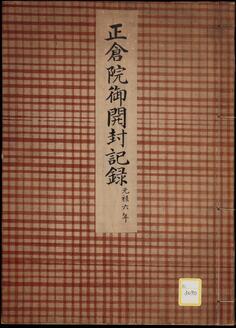 正倉院御開封記録 元禄六年